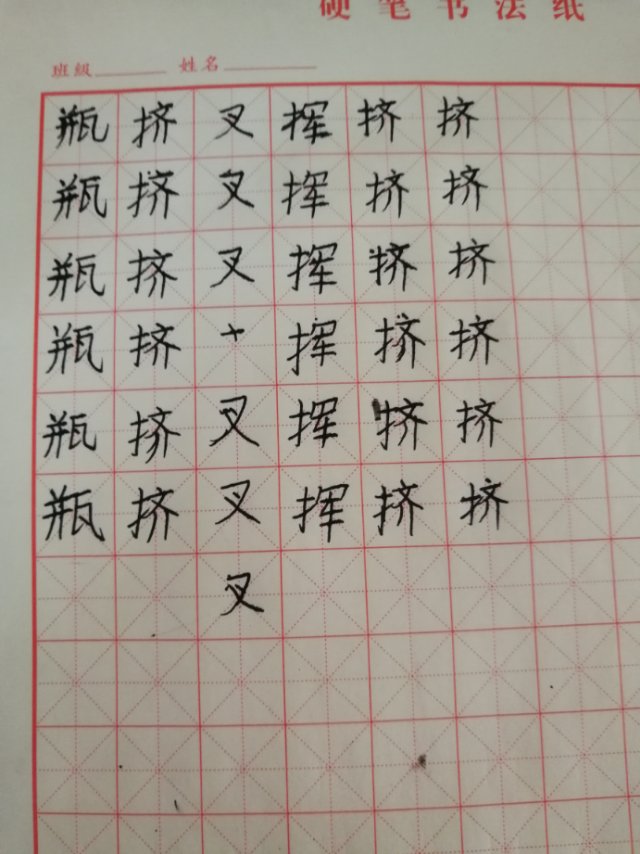 硬笔书法纸
班级 姓名
瓶挤叉挥挤挤
瓶挤叉挥挤挤
瓶挤叉挥挤挤
瓶挤十挥挤挤
瓶挤叉挥挤挤
瓶挤叉挥挤挤
叉